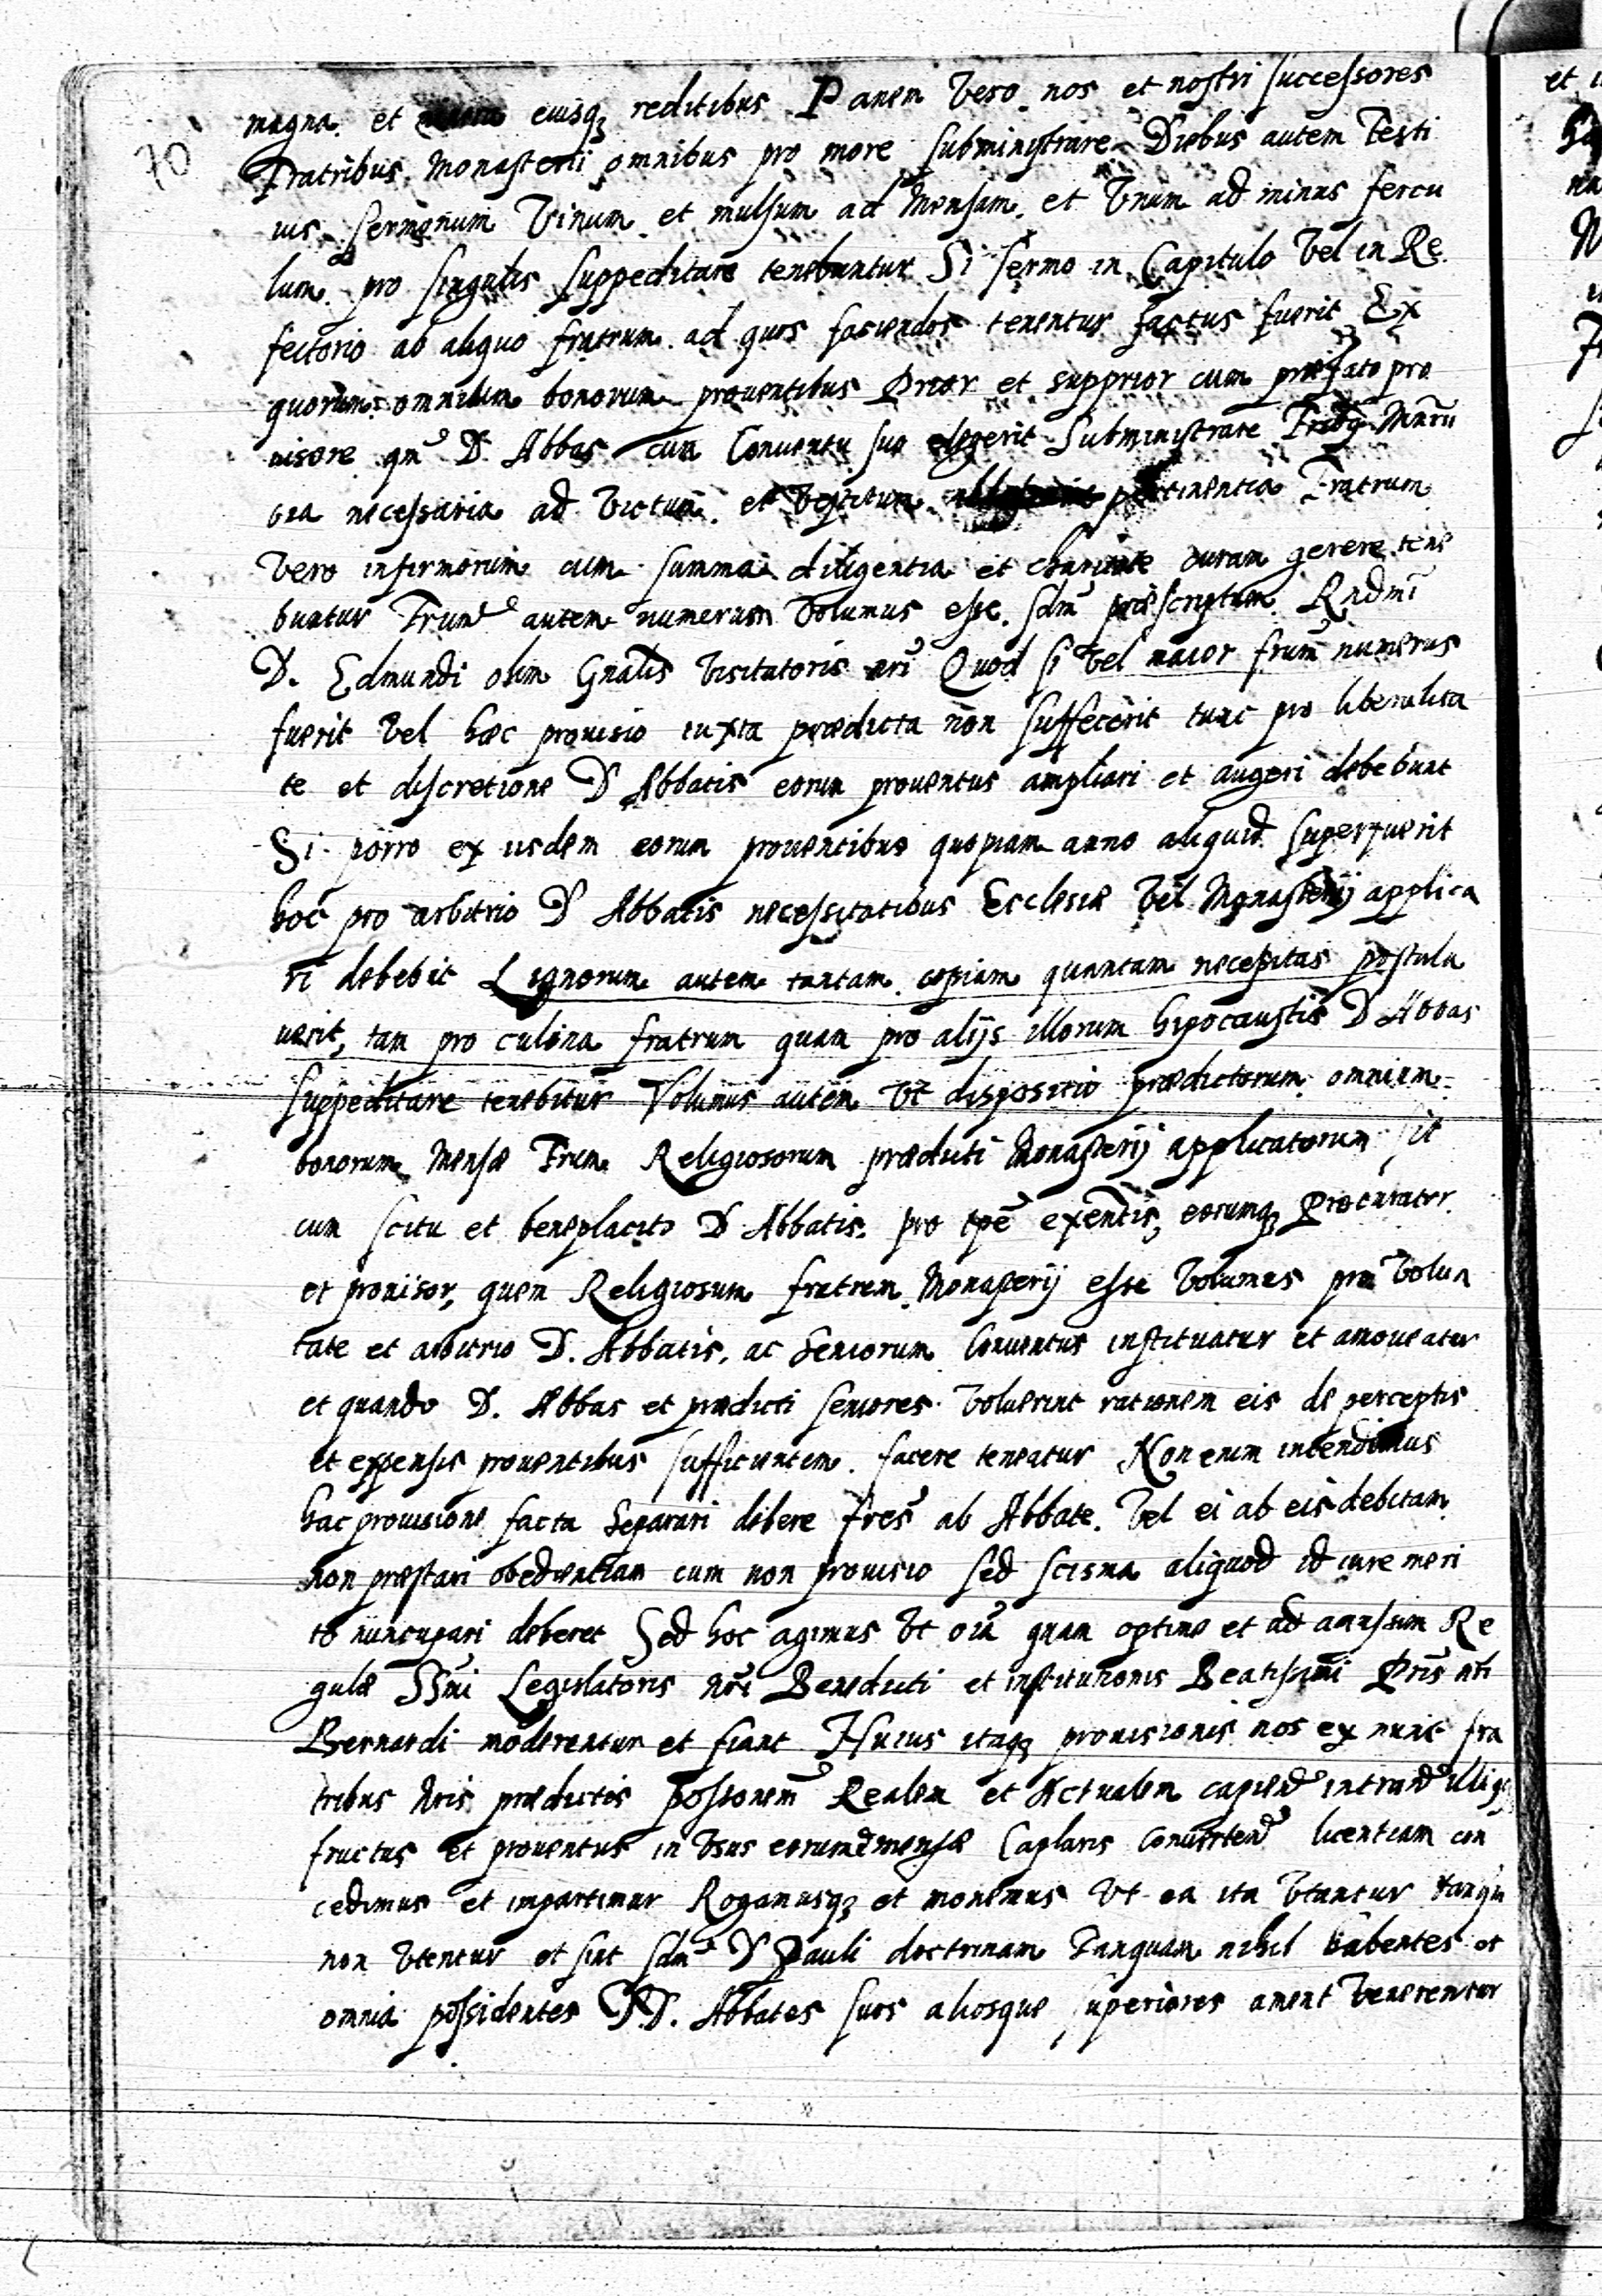 70
magna et eiusq reditibus Panem vero nos et nostri successores
Fratribus Monasterii omnibus pro more subministrare Diebus autem Festi
uis sermonum Vinum et mulsum ad Mensam et Vnum ad minus fercu
lum pro singulis suppeditare tenebuntur Si sermo in Capitulo vel in Re
fectorio ab aliquo fratrum ad quos faciendos tenentur factus fuerit Ex
quorum omnium bonorum prouentibus Prior et supprior cum præfato pro
uisore qm D Abbas cum Conuentu suo elegerit Subministrare
necessaria ad victum et vestitum pertinentia Fratrum
vero infirmorum cum summa diligentia et charitate curam gerere tene
buntur Frum autem numerum volumus esse sdm præscriptum Rndmi
D. Edmundi olim Gnalis visitatoris nri Quod si vel maior frum numerus
fuerit vel hæc prouisio iuxta prædicta non suffecerit tunc pro liberalita
te et discretione D Abbatis eorum prouentus ampliari et augeri debebunt
Si porro ex iisdem eorum prouentibus quopiam anno aliquid superfuerit
hoc pro arbitrio D Abbatis necessitatibus Ecclesiæ vel Monasterij applica
ri debebit Lignorum autem tantam copiam quantam necessitas postula
uerit, tam pro culina fratrum quam pro alijs illorum hypocaustis D Abbas
suppeditare tenebitur Volumus autem vt dispositio prædictorum omnium
bonorum Mensæ Frum Religiosorum prædicti Monasterij applicatorum sit
cum scitu et beneplacito D Abbatis pro tpe exentis, eorumq Procurator
et prouisor, quem Religiosum fratrem Monasterij esse volumus pro volun
tate et arbitrio D. Abbatis, ac seniorum Conuentus instituatur et amoueatur
et quando D. Abbas et prædicti seniores voluerint rationem eis de perceptis
et expensis prouentibus sufficientem facere teneatur Non enim intendimus
hac prouisione facta separari debere fres ab Abbate vel ei ab eis debitam
non præstari obedientiam cum non prouisio sed scisma aliquod id iure meri
to nuncupari deberet Sed hoc agimus vt oia quam optime et ad amussim Re
gulæ SSmi Legislatoris nri Benedicti et institutionis Beatissimi Pris nri
Bernardi moderentur et fiant Huius itaq prouisionis nos ex nunc fra
tribus nris prædictis possionem Realem et Actualem capiend intrand illiq
fructus et prouentus in vsus eorundem mensæ Caplaris conuertend licentiam con
cedimus et impartimur Rogamusq et monemus vt ea ita vtantur tanqu
non vtentur et sint sdm D Pauli doctrinam Tanquam nihil habentes et
omnia possidentes D.D. Abbates suos aliosque superiores ament venerentur